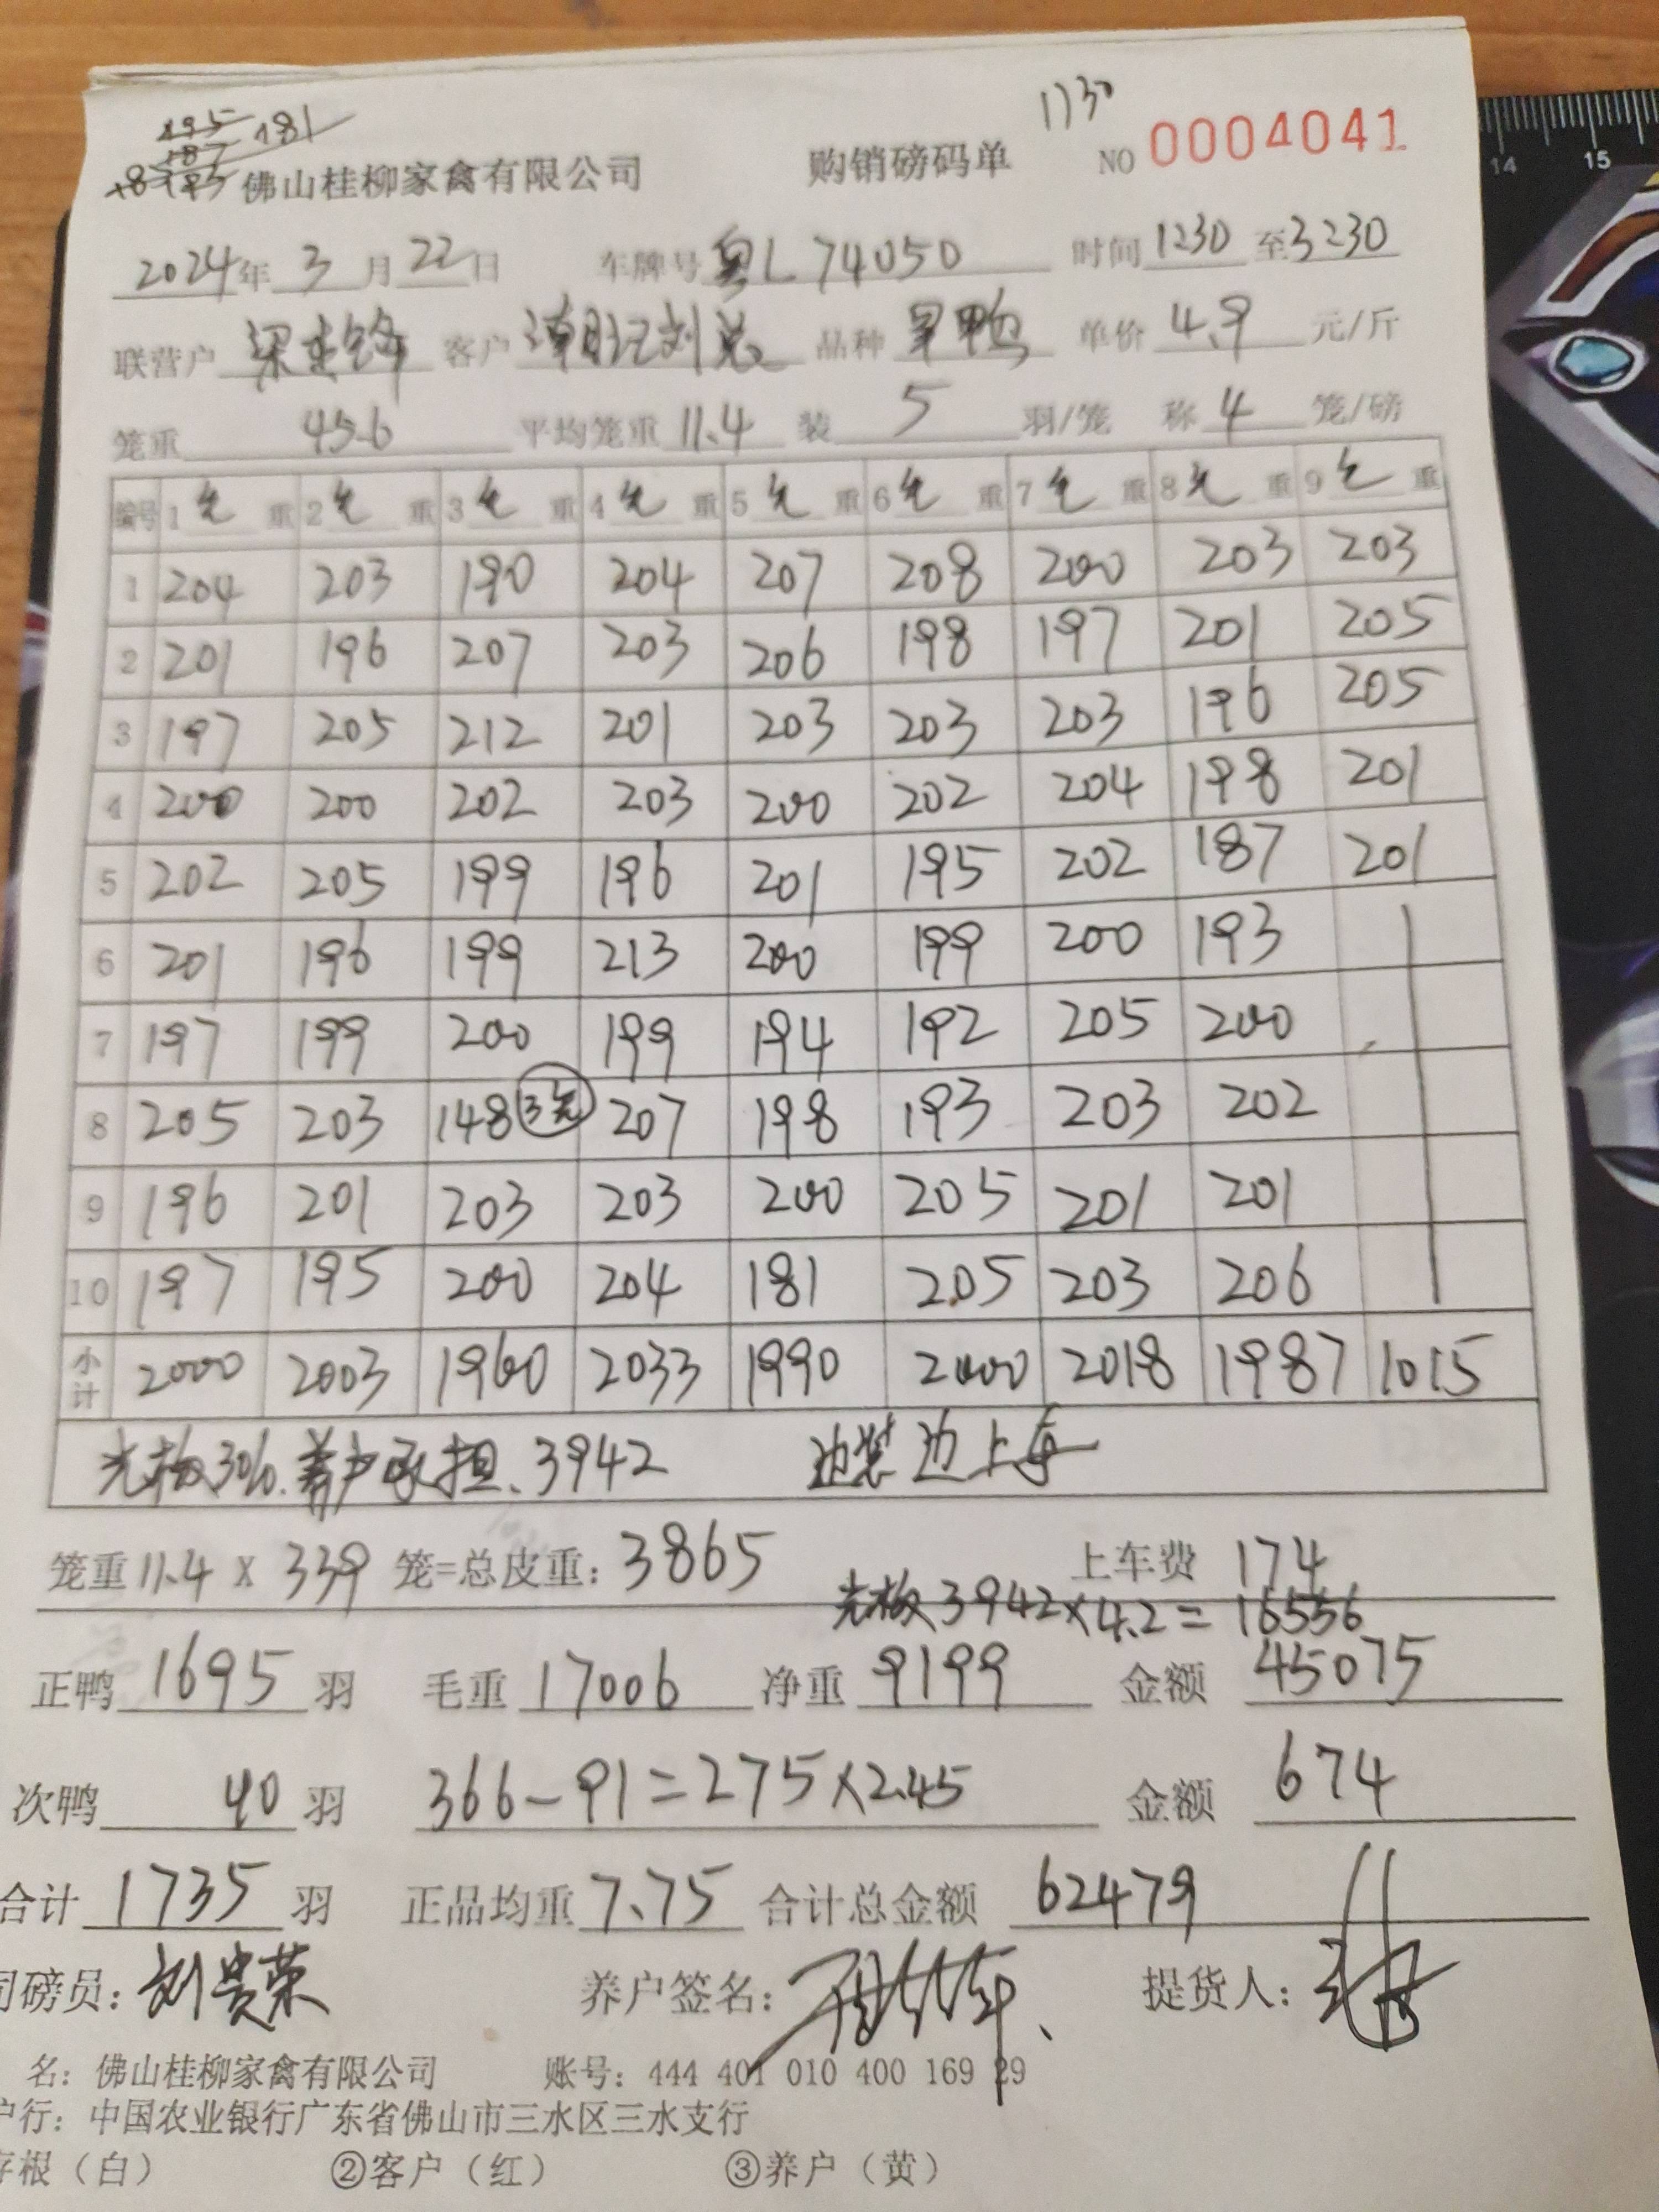 1130
195 181
187
+8 193 佛山桂柳家禽有限公司 购销磅码单 NO 0004041
2024年 3月 22日 车牌号 粤L 74050 时间 1230 至 3230
联营户 客户 刘总 品种 单价 4.9 元/斤
笼重 45.6 平均笼重 11.4 装 5 羽/笼 称 4 笼/磅
编号 1毛重 2毛重 3毛重 4毛重 5毛重 6毛重 7毛重 8毛重 9毛重
1 204 203 190 204 207 208 200 203 203
2 201 196 207 203 206 198 197 201 205
3 197 205 212 201 203 203 203 196 205
4 200 200 202 203 200 202 204 198 201
5 202 205 199 196 201 195 202 187 201
6 201 196 199 213 200 199 200 193
7 197 199 200 199 194 192 205 200
8 205 203 148 3笼 207 198 193 203 202
9 196 201 203 203 200 205 201 201
10 197 195 200 204 181 205 203 206
小计 2000 2003 1960 2033 1990 2000 2018 1987 1015
光板30%.养户承担、3942 边装边上车
笼重 11.4 X 339 笼=总皮重: 3865 上车费 174
光板 3942×4.2=16556
正鸭 1695 羽 毛重 17006 净重 9199 金额 45075
次鸭 40 羽 366-91=275×2.45 金额 674
合计 1735 羽 正品均重 7.75 合计总金额 62479
司磅员: 刘贵荣 养户签名: 提货人:
名: 佛山桂柳家禽有限公司 账号: 444 401 010 400 169 29
户行: 中国农业银行广东省佛山市三水区三水支行
存根(白) ②客户(红) ③养户(黄)
14 15